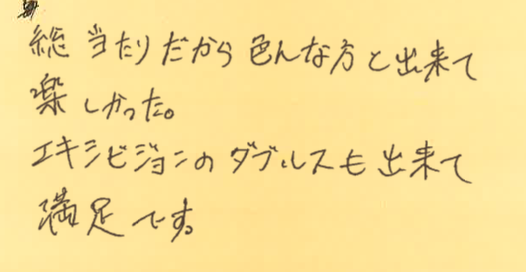 総当たりだから色んな方と出来て
楽しかった。
エキシビジョンのダブルスも出来て
満足です。